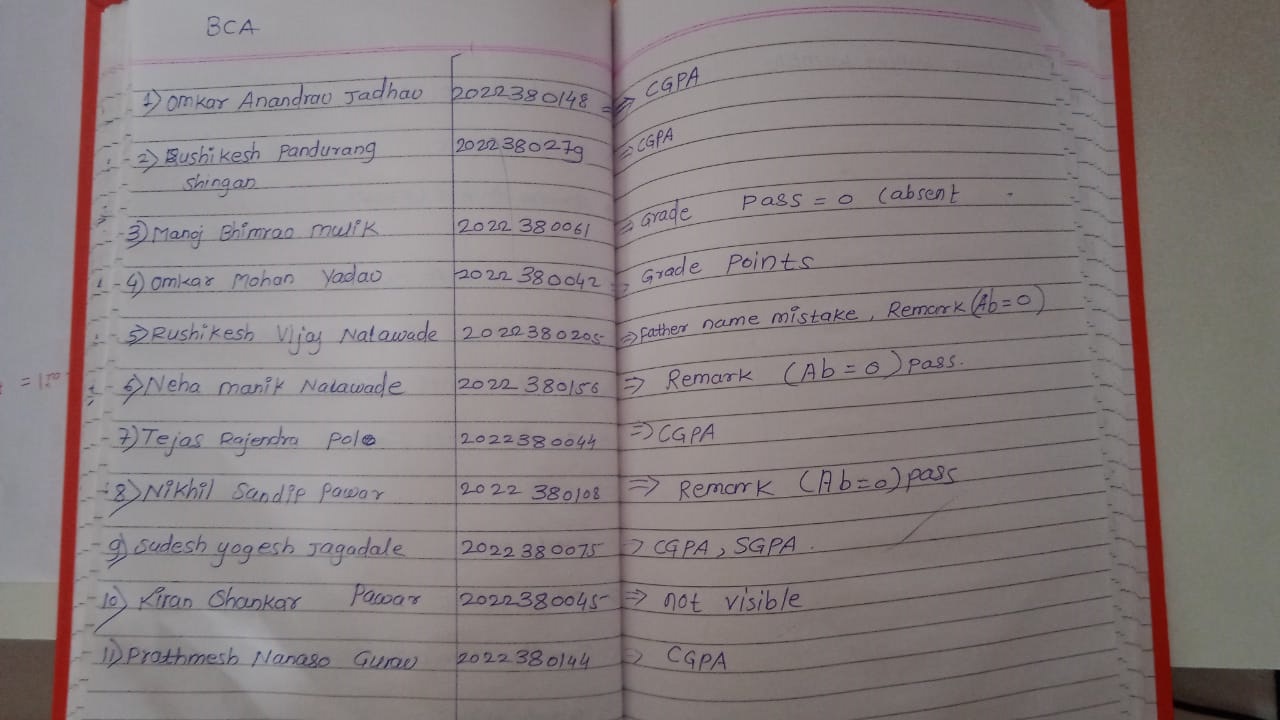 BCA
1) Omkar Anandrao Jadhav 2022380148 => CGPA
2) Rushikesh Pandurang 2022380279 => CGPA
Shingan
3) Manoj Bhimrao mulik 2022380061 => Grade Pass = 0 (absent
4) Omkar Mohan Yadav 2022380042 => Grade Points
5) Rushikesh Vijay Nalawade 2022380205 => Father name mistake, Remark (Ab=0)
6) Neha manik Nalawade 2022380156 => Remark (Ab = 0) pass.
7) Tejas Rajendra Pol 2022380044 => CGPA
8) Nikhil Sandip Pawar 2022380108 => Remark (Ab=0) pass
9) Sudesh yogesh Jagadale 2022380075 => CGPA, SGPA.
10) Kiran Shankar Pawar 2022380045 => not visible
11) Prathmesh Nanaso Gurav 2022380144 => CGPA